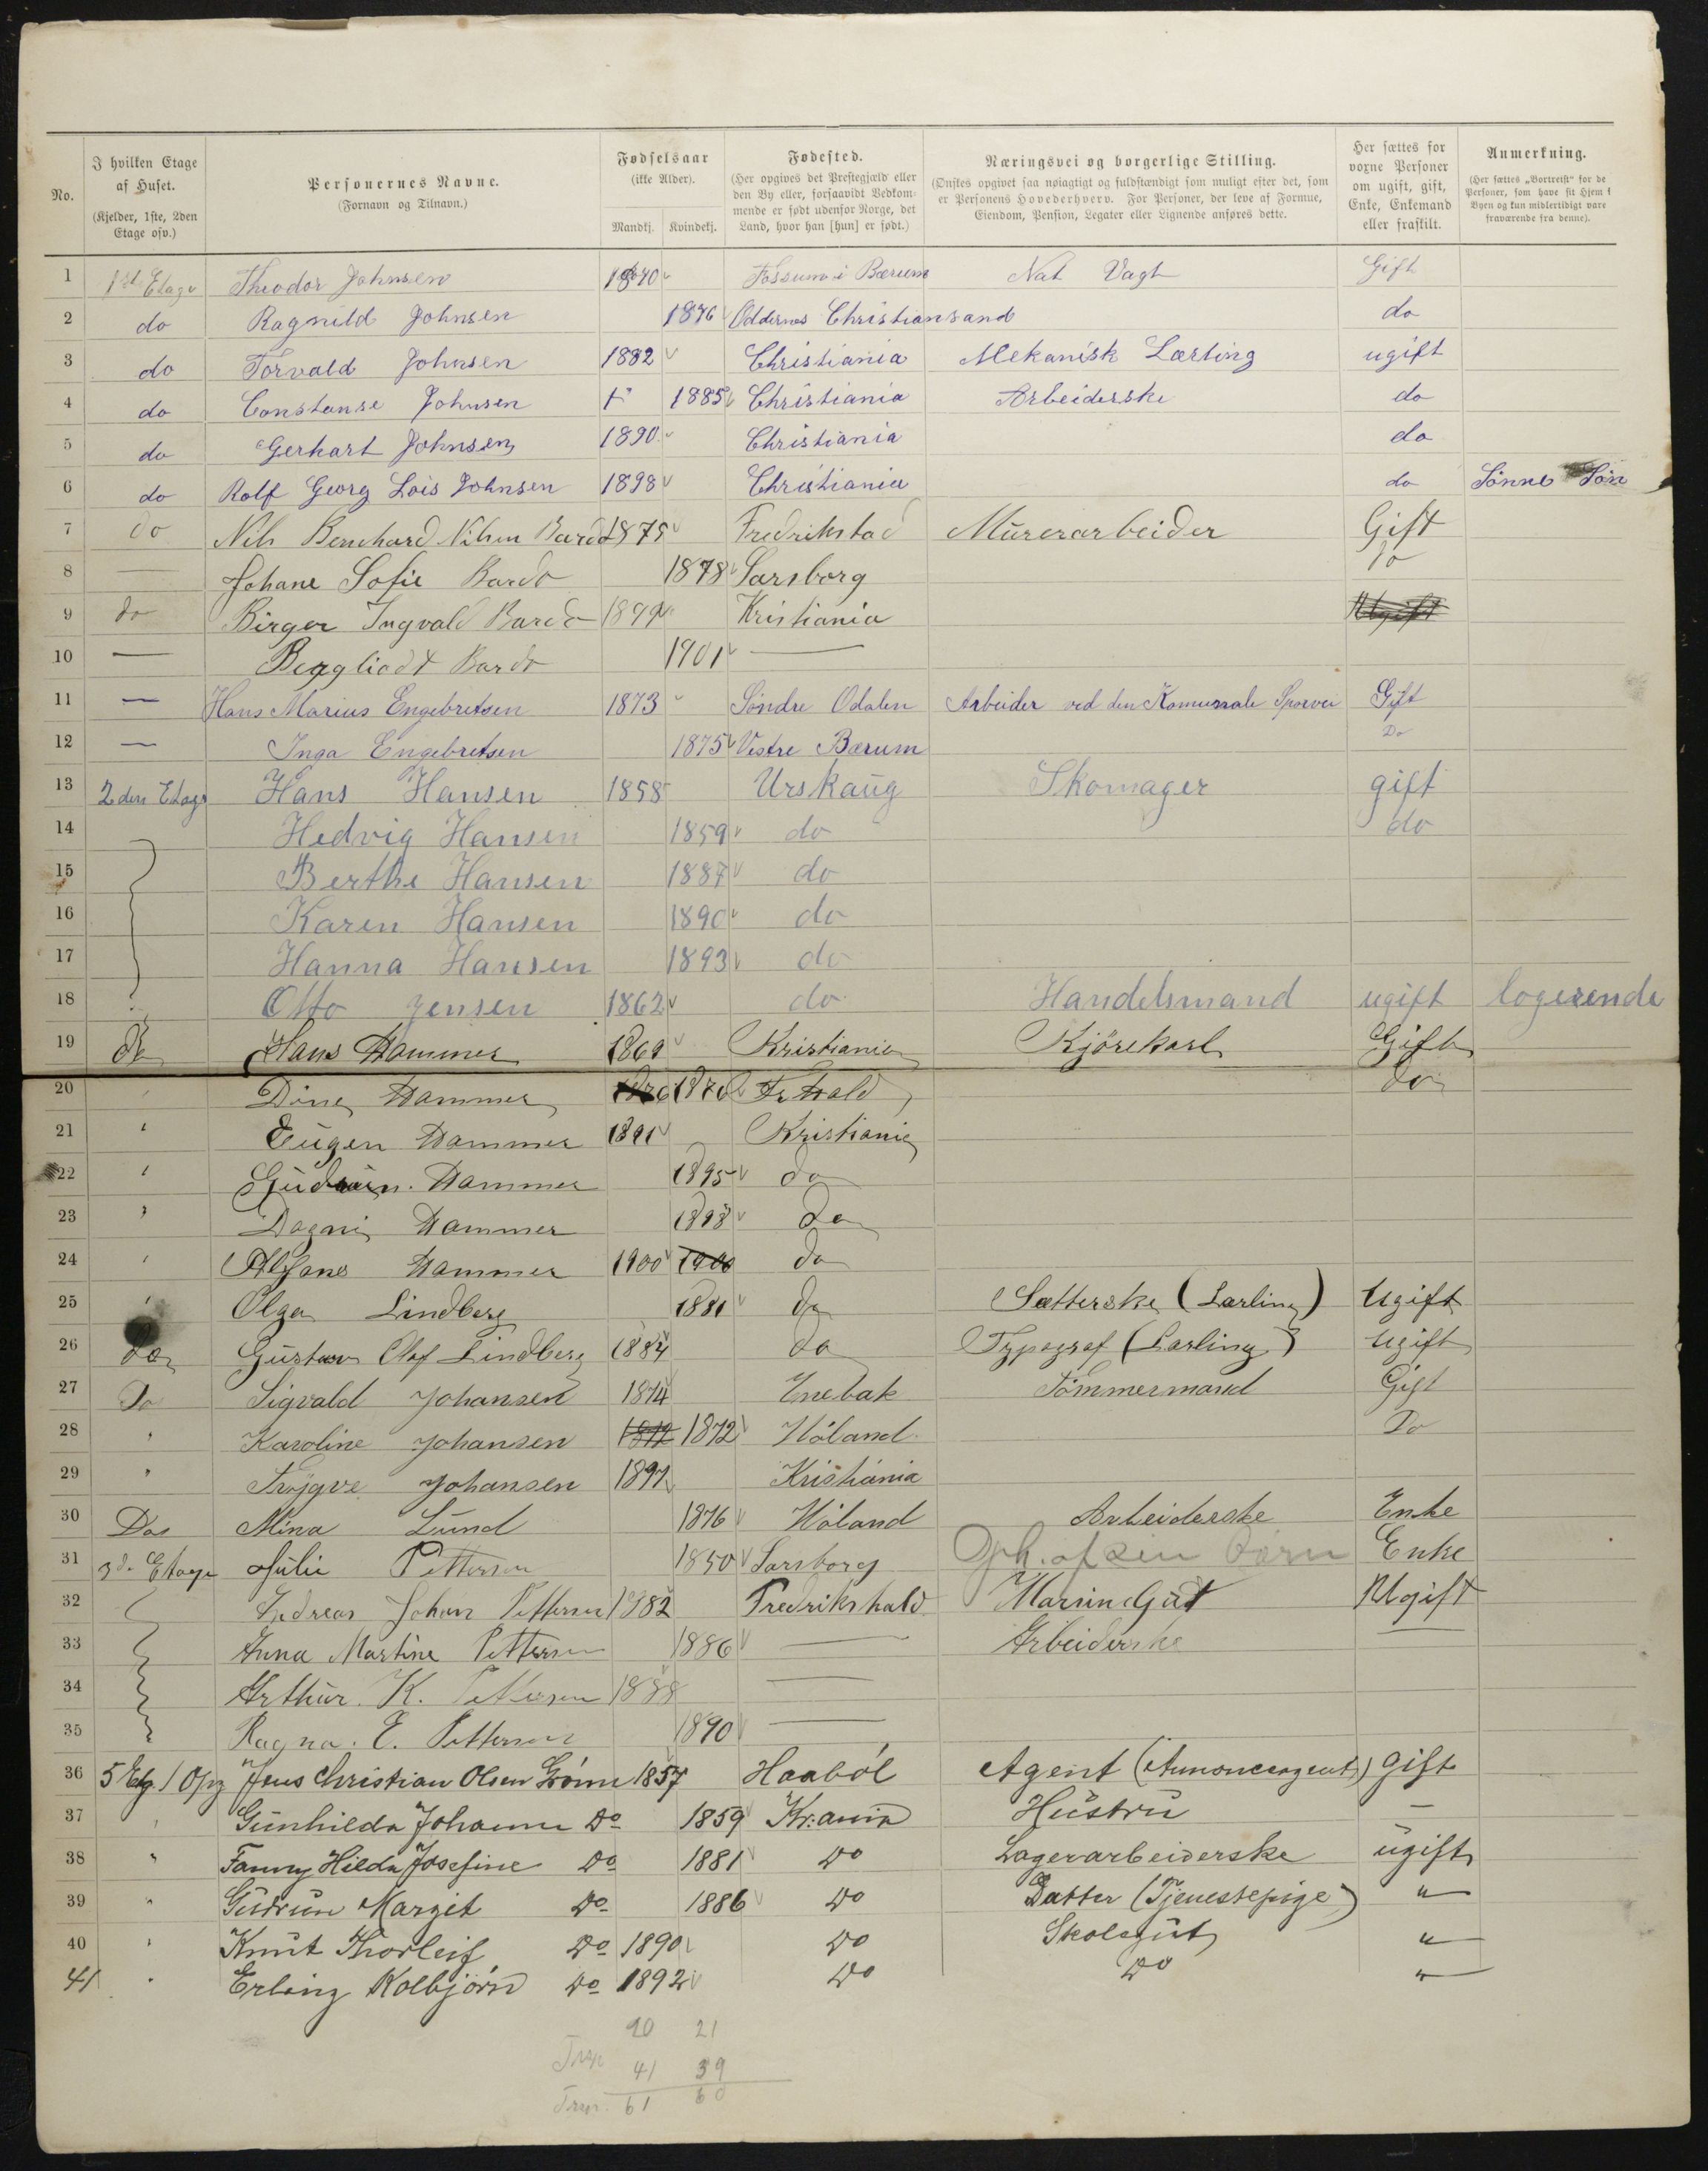 No. I hvilken Etage af Huset. (Kjelder, 1ste, 2den Etage osv.) Personernes Navne. (Fornavn og Tilnavn.) Fødselsaar (ikke Alder). Mandkj. Kvindekj. Fødested. (Her opgives det Prestegjæld eller den By eller, forsaavidt Vedkommende er født udenfor Norge, det Land, hvor han [hun] er født.) Næringsvei og borgerlige Stilling. (Ønskes opgivet saa nøiagtigt og fuldstændigt som muligt efter det, som er Personens Hovederhverv. For Personer, der leve af Formue, Eiendom, Pension, Legater eller Lignende anføres dette. Her sættes for voxne Personer om ugift, gift, Enke, Enkemand eller fraskilt. Anmerkning. (Her sættes „Bortreist“ for de Personer, som have sit Hjem i Byen og kun midlertidigt vare fraværende fra denne).
1 1ste Etage Theodor Johnsen 1840 Fossum i Bærum Nat Vagt Gift
2 do Ragnild Johnsen 1876 Oddernes Christiansand do
3 do Torvald Johnsen 1882 Christiania Mekanisk Lærling ugift
4 do Constanse Johnsen 1885 Christiania Arbeiderske do
5 do Gerhart Johnsen 1890 Christiania do
6 do Rolf Georg Lois Johnsen 1898 Christiania do Sönne Sön
7 do Nils Bernhard Nilsen Bardo 1875 Fredrikstad Mürerarbeider Gift
8 — Johane Sofie Bardo 1878 Sarsborg do
9 do Birger Ingvald Bardo 1899 Kristiania Ugift
10 — Bergliodt Bardo 1901 —
11 — Hans Marius Engebretsen 1873 Söndre Odalen Arbeider ved den Komunale Sporvei Gift
12 — Inga Engebretsen 1875 Vestre Bærum Do
13 2den Etage Hans Hansen 1858 Urskaug Skomager gift
14 Hedvig Hansen 1859 do do
15 Berthe Hansen 1887 do
16 Karen Hansen 1890 do
17 Hanna Hansen 1893 do
18 Otto Jensen 1862 do Handelsmand ugift logerende
19 do Hans Hammer 1869 Kristiania Kjörekarl Gift
20 Hammer 1870 Fr hald do
21 " Eugen Hammer 1891 Kristiania
22 " Gudrun Hammer 1895 do
23 " Dagni Hammer 1898 do
24 " Hammer 1900 1900 do
25 " Olga Lindberg 1881 do Sætterske (Lærling) Ugift
26 do Gustav Olaf Lindberg 1884 do Typograf (Lærling) ugift
27 Do Sigvald Johansen 1874 Enebak Tömmermand Gift
28 " Karoline Johansen 1872 1872 Höland Do
29 " Trÿgve Johansen 1897 Kristiania
30 Do Mina Lund 1876 Höland Arbeiderske Enke
31 3de Etage Julie Pettersen 1850 Sarsborg Oph. af sin Börn Enke
32 Andreas Johan Pettersen 1882 Fredrikshald Ugift
33 Anna Martine Pettersen 1886 — Arbeiderske
34 Arthur K. Pettersen 1888 —
35 Ragna. E. Pettersen 1890 —
36 5 Etg. 1 Opg Jens Christian Olsen Grönn 1857 Haaböl Agent (Annonceagent) gift
37 " Gunhilda Johanne Do 1859 Kr.ania Hustru —
38 " Fanny Hilda Josefine Do 1881 Do Lagerarbeiderske ugift
39 " Gudrun Margit Do 1886 Do Datter (Tjenestepige) "
40 " Knut Thorleif Do 1890 Do Skolegut "
41 " Erling Kolbjörn Do 1892 Do Do "
20 21
41 39
61 60